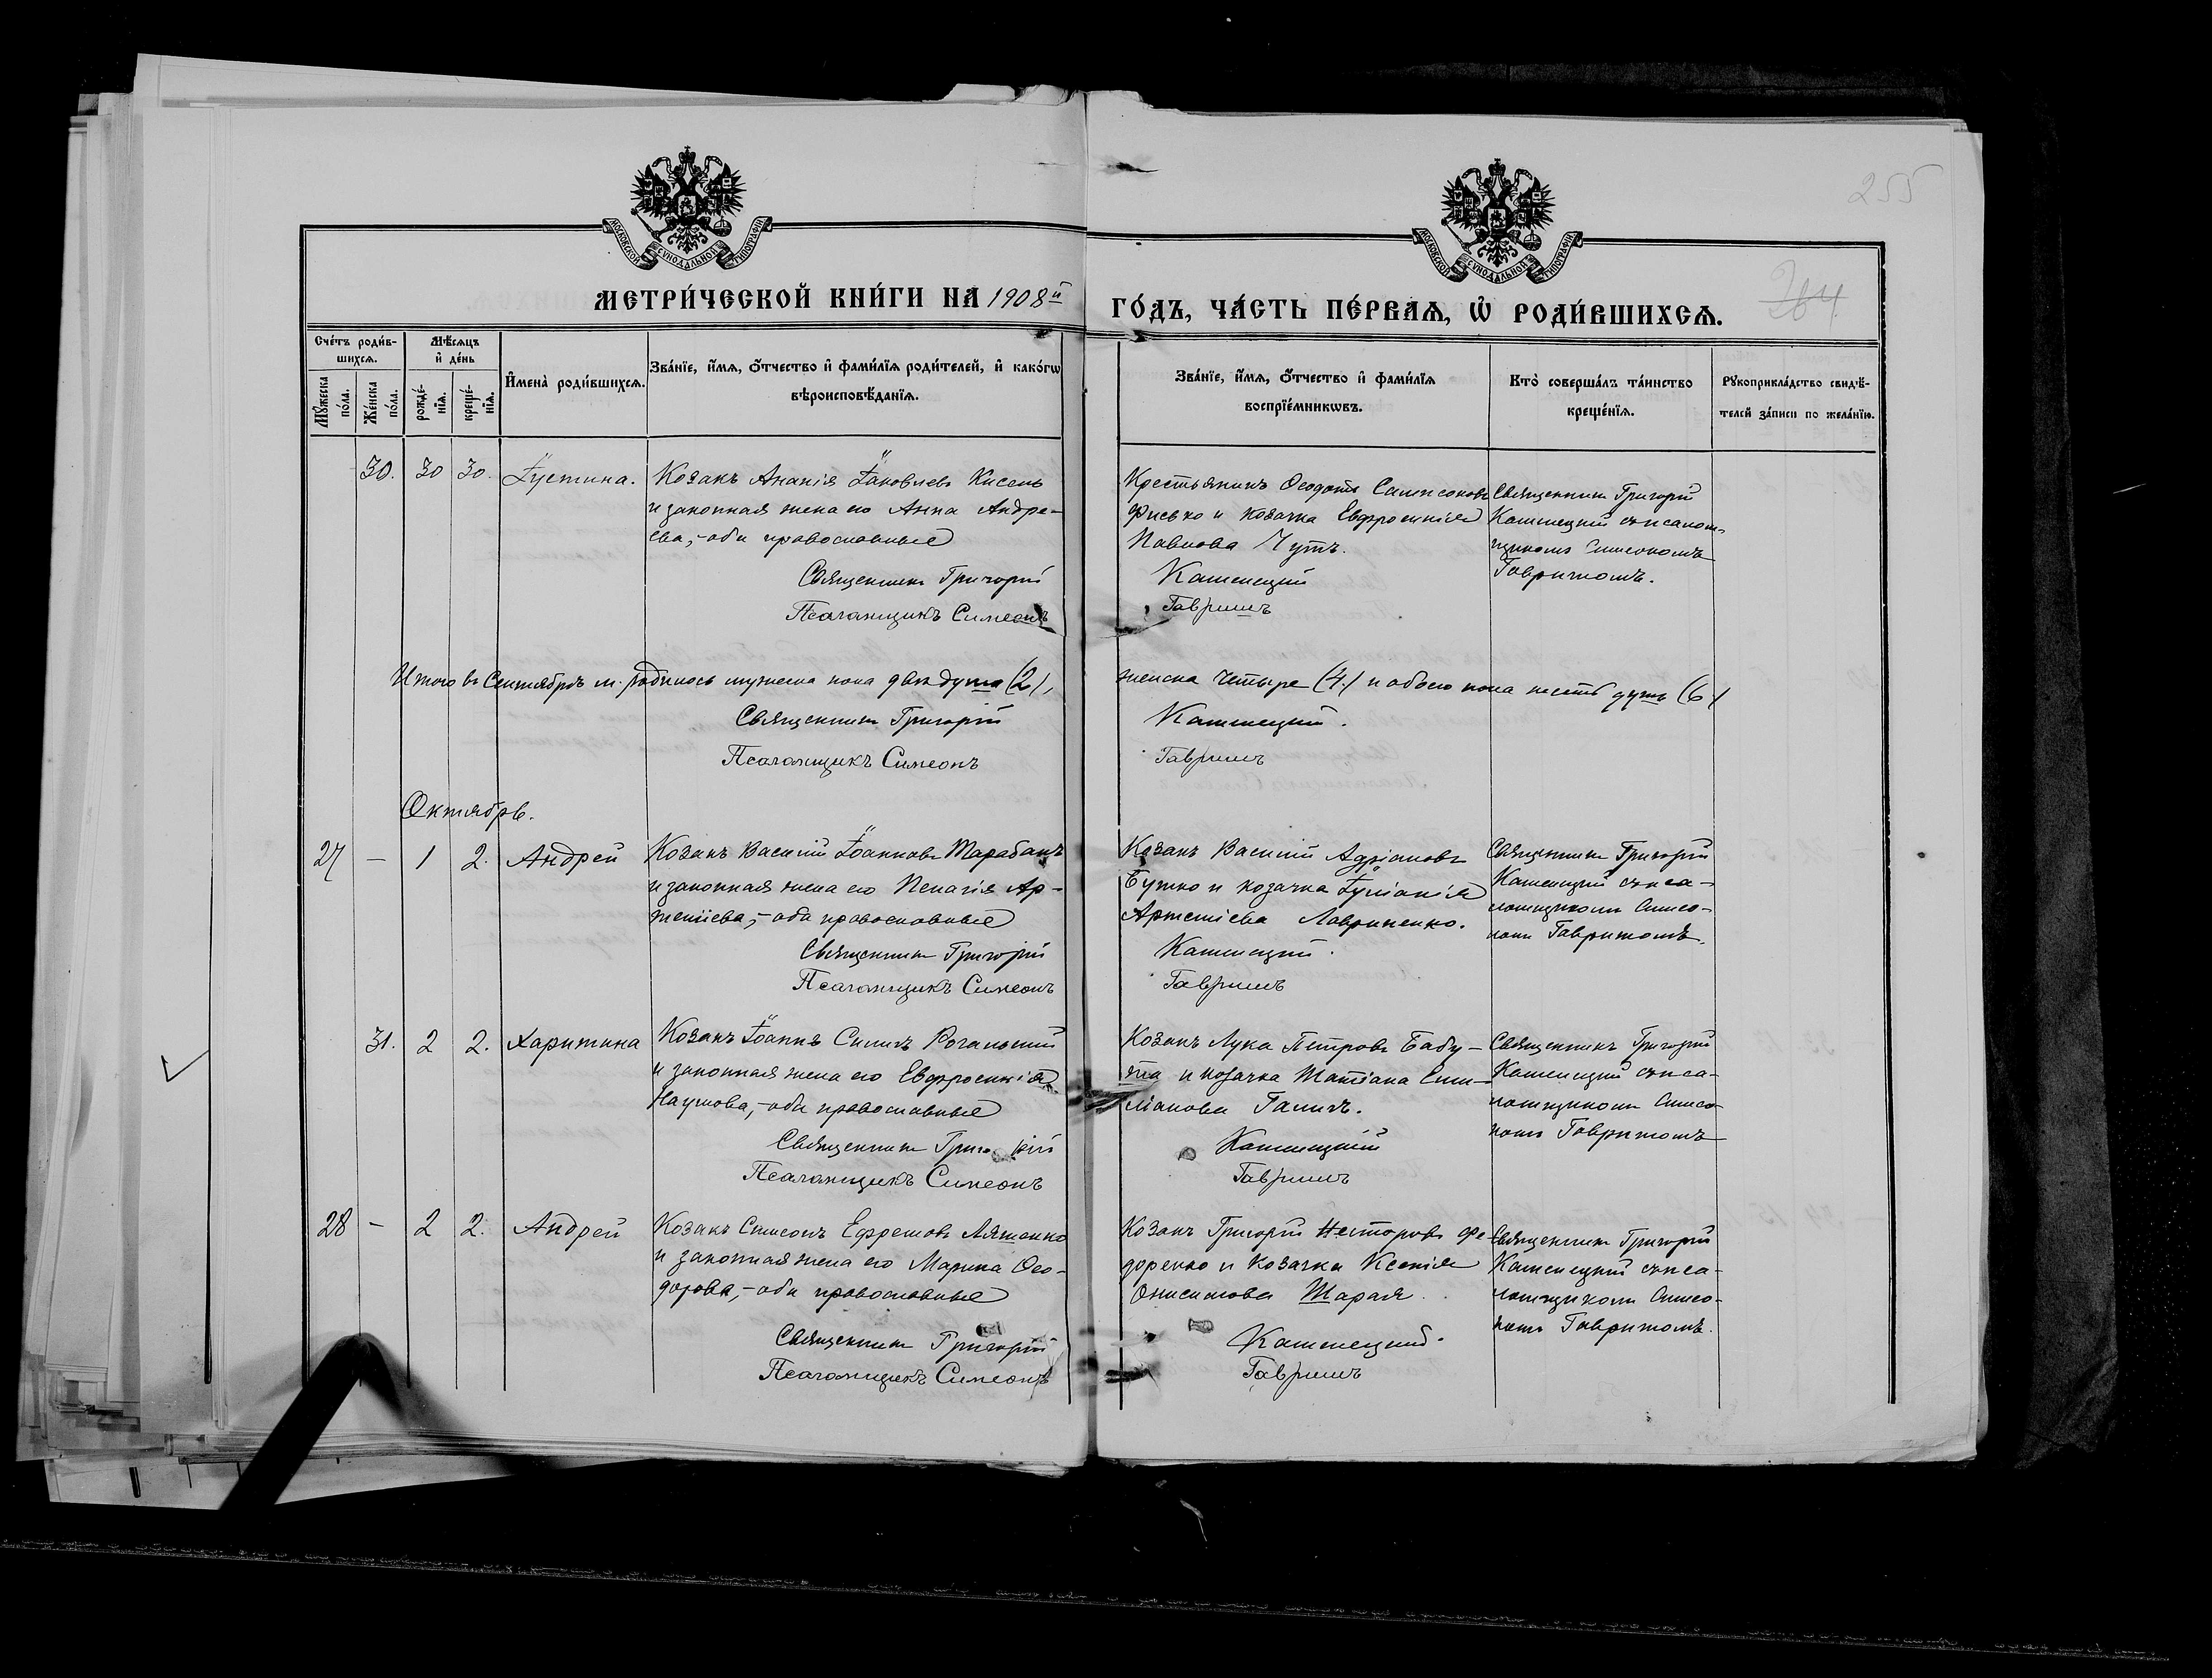 255
264.
МОСКОВСКОЙ СѴНОДАЛЬНОЙ ТИПОГРАФІИ
МОСКОВСКОЙ СѴНОДАЛЬНОЙ ТИПОГРАФІИ
МЕТРИ́ЧЕСКОЙ КНИ́ГИ НА 1908й ГО́ДЪ, ЧА́СТЬ ПЕ́РВАѦ, Ѽ РОДИ́ВШИХСѦ.
Сче́тъ роди́в-
шихсѧ.
Мѣ́сѧцъ
и҆ де́нь
Мꙋ́жеска по́ла.
Же́нска по́ла.
рожде́-
нїѧ.
креще́-
нїѧ.
И҆мена̀ роди́вшихсѧ.
Зва́нїе, и҆́мѧ, ѻ҆́тчество и҆ фами́лїѧ роди́телей, и҆ како́гѡ
вѣроисповѣ́данїѧ.
Зва́нїе, и҆́мѧ, ѻ҆́тчество и҆ фами́лїѧ
воспрїе́мникѡвъ.
Кто̀ соверша́лъ та́инство
креще́нїѧ.
Рꙋкоприкла́дство свидѣ́-
телей за́писи по жела́нїю.
30. 30 30. Іустина.
Козакъ Ананія Іаковлевъ Кисель
и законная жена его Анна Андре-
ева,-оба православные
Священникъ Григорій
Псаломщикъ Симеонъ
Крестьянинъ Ѳеодотъ Сампсоновъ
Фисько и козачка Евфросинія
Павлова Чутъ.
Каменецкій
Гавришъ
Священникъ Григорій
Каменецкій съ псалом-
щикомъ Симеономъ
Гавришомъ.
Итого въ Сентябрѣ м. родилось мужеска пола двѣ душа (2), женска четыре (4.) и обоего пола шесть душъ (6)
Священникъ Григорій Каменецкій.
Псаломщикъ Симеонъ Гавришъ
Октябрь.
27 — 1 2. Андрей
Козакъ Василій Іоанновъ Тарабанъ
и законная жена его Пелагія Ар-
теміева,-оба православные
Священникъ Григорій
Псаломщикъ Симеонъ
Козакъ Василій Адріановъ
Бутко и козачка Іуліанія
Артеміева Лавриненко.
Каменецкій.
Гавришъ
Священникъ Григорій
Каменецкій съ пса-
ломщикомъ Симео-
номъ Гавришомъ.
31. 2 2. Харитина
Козакъ Іоаннъ Силичъ Рогальскій
и законная жена его Евфросинія
Наумова,-оба православные
Священникъ Григорій
Псаломщикъ Симеонъ
Козакъ Лука Петровъ Бабу-
и козачка Татіана Еми-
ліанова Галичъ.
Каменецкій
Гавришъ
Священникъ Григорій
Каменецкій съ пса-
ломщикомъ Симео-
номъ Гавришомъ
28 — 2 2. Андрей
Козакъ Симеонъ Ефремовъ Ляшенко
и законная жена его Марина Ѳео-
дорова,-оба православные
Священникъ Григорій
Псаломщикъ Симеонъ
Козакъ Григорій Несторовъ Фе-
доренко и козачка Ксенія
Онисимова Шарая.
Каменецкій.
Гавришъ
Священникъ Григорій
Каменецкій съ пса-
ломщикомъ Симео-
номъ Гавришомъ.